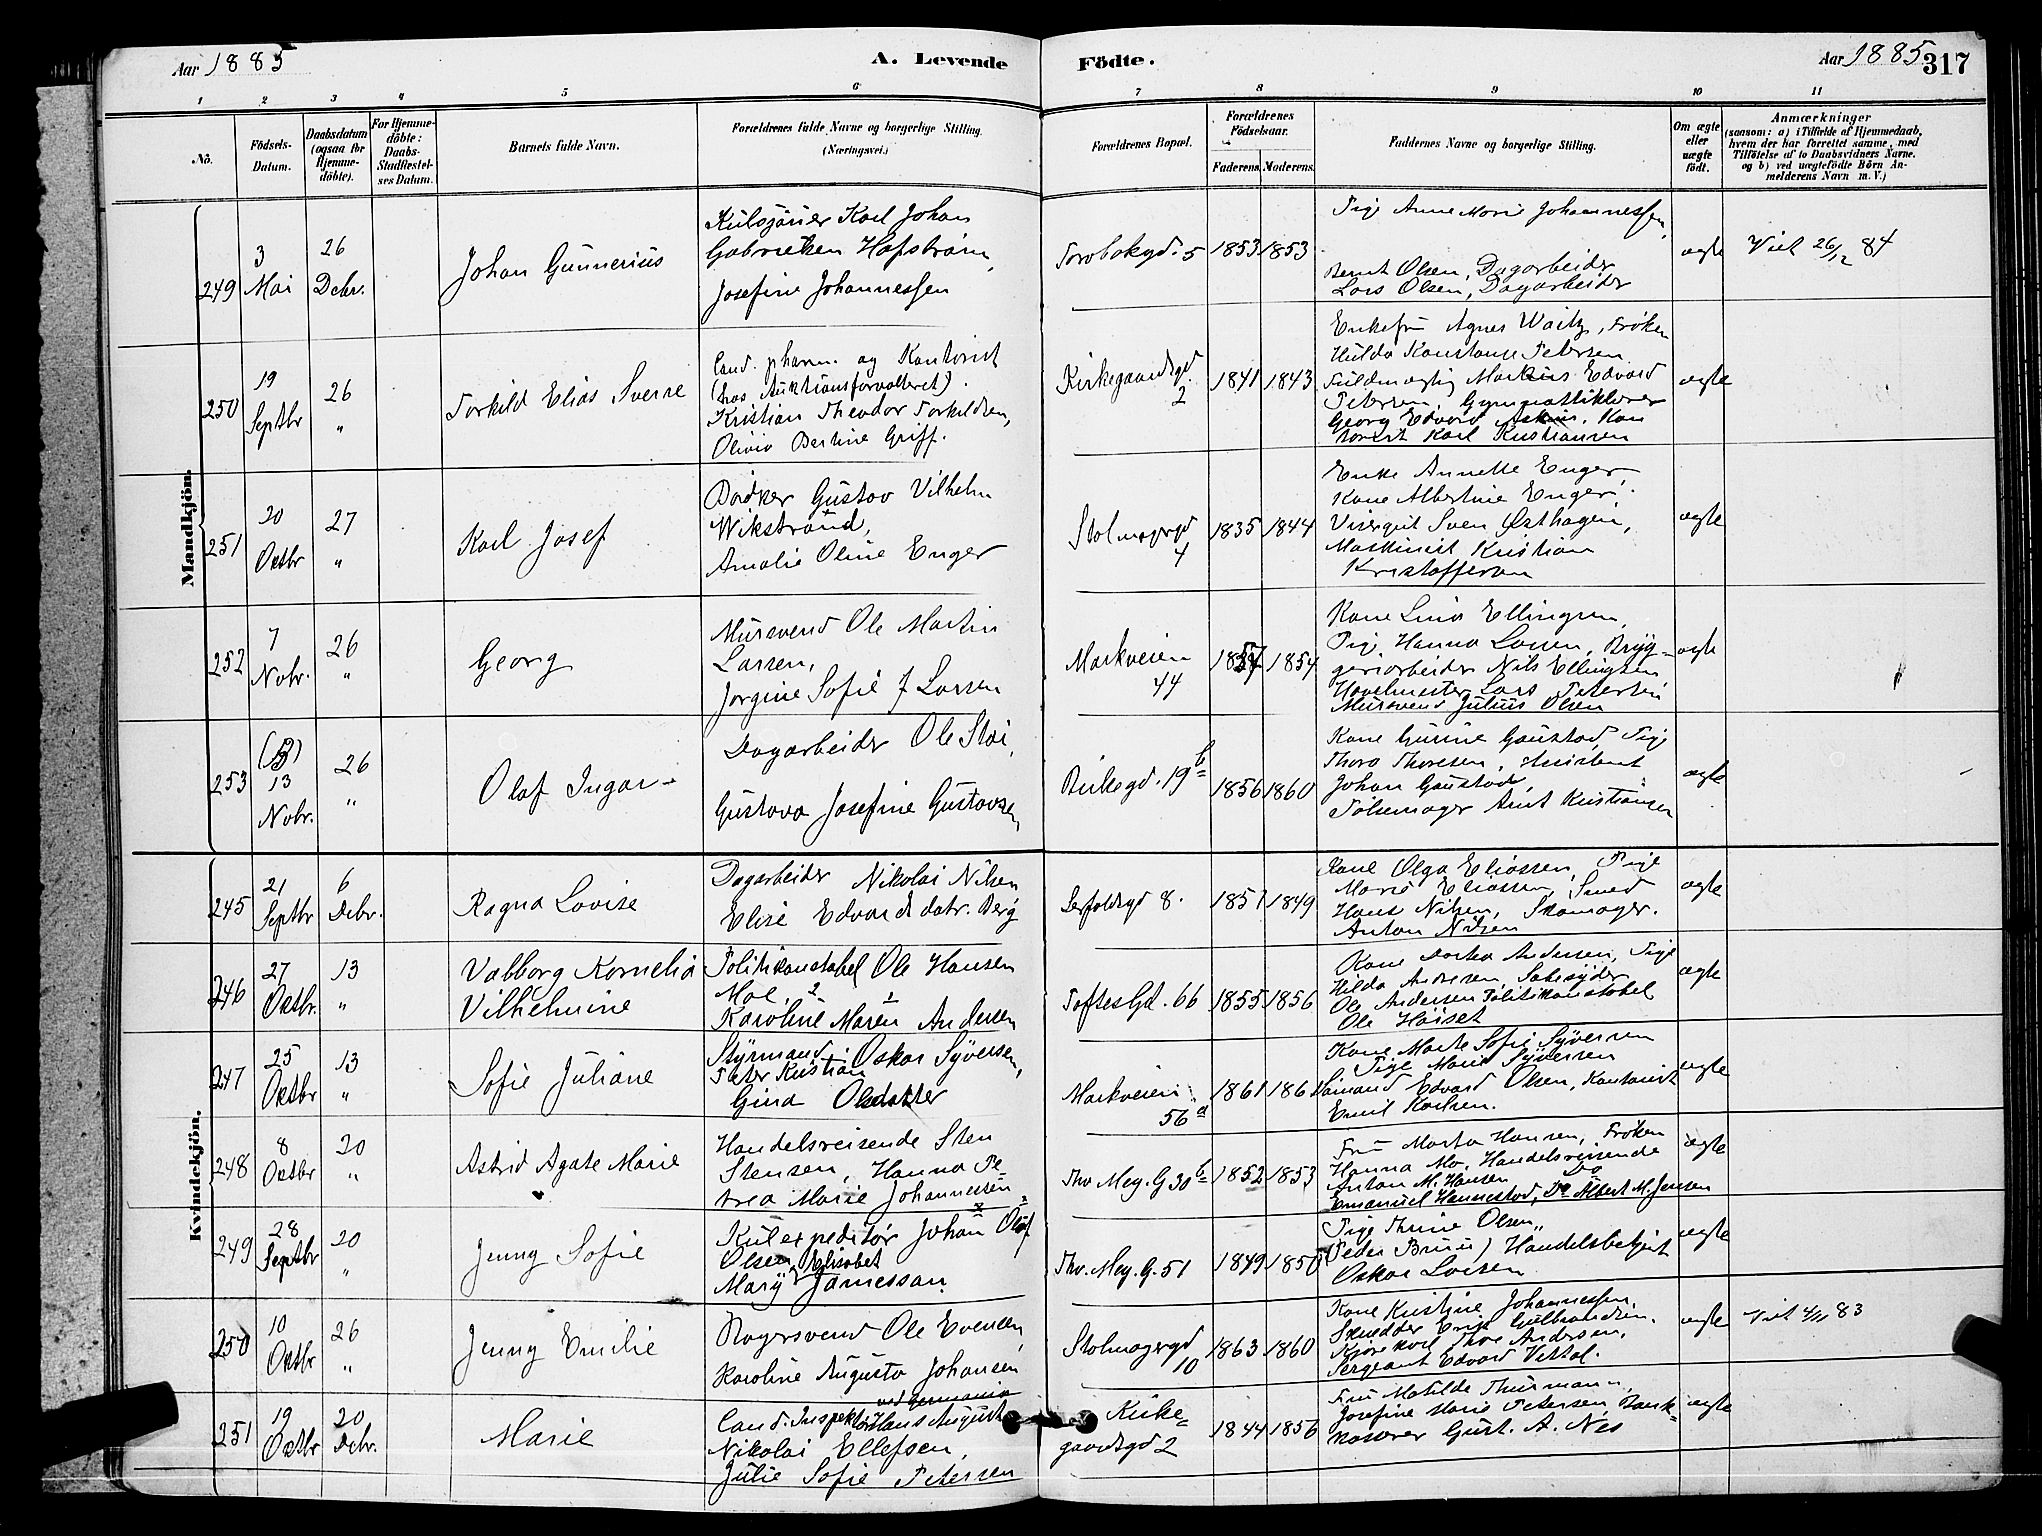 Aar 1885
A. Levende Födte.
Aar 1885
317
1 2 3 4 5 6 7 8 9 10 11
No.
Födsels-
Datum.
Daabsdatum
(ogsaa for
Hjemme-
döbte).
For Hjemme-
döbte:
Daabs-
Stadfæstel-
ses Datum.
Barnets fulde Navn.
Forældrenes fulde Navne og borgerlige Stilling.
(Næringsvei.)
Forældrenes Bopæl.
Forældrenes
Födselsaar.
Faderens. Moderens.
Faddernes Navne og borgerlige Stilling.
Om ægte
eller
uægte
födt.
Anmærkninger
(saasom: a) i Tilfælde af Hjemmedaab,
hvem der har forrettet samme, med
Tilföielse af to Daabsvidners Navne,
og b) ved uægtefödte Börn An-
melderens Navn m. V.)
Mandkjön.
249
3
Mai
26
Debr.
Johan Gunnerius
Karl Johan
Gabrielsen Hafström,
Josefine Johannessen
5
1853 1853
Pige Anne Marie Johannessen,
Bernt Olsen, Dagarbeider
Lars Olsen, Dagarbeider
ægte
Viet 26/12 84
250
19
Septbr
26
"
Torkild Elias Sverre
Cand. pharm. og Kontorist
(hos Auktionsforvalteret).
Kristian Theodor Torkildsen,
Olivia Bertine Griff.
Kirkegaardsgd.
2
1841 1843
Enkefru Agnes Waitz, Frøken
Hulda Konstanse Petersen
Fuldmægtig Markus Edvard
Petersen, Gymnastiklærer
Georg Edvard, Kon
torist Karl Kristiansen
ægte
251
20
Octbr
27
"
Karl Josef
Bødker Gustav Vilhelm
Wikstrand,
Amalie Oline Enger
Stolmagergd
4
1835 1844
Enke Annette Enger,
Kone Albertine Enger,
Visergut Sven Østhagen,
Maskinist Kristian
Kristoffersen
ægte
252
7
Nobr.
26
"
Georg
Mursvend Ole Martin
Larsen,
Jørgine Sofie J Larsen
Markveien
44
1854
Kone Lina Ellingsen,
Pige Hanna Larsen, Bryg-
geriarbeider Nils Ellingsen
Høvelmester Lars Petersen
Mursvend Julius Olsen
ægte
253
13
Nobr.
26
"
Olaf Ingar
Dagarbeider Ole Stai,
Gustava Josefine Gustavsen
Birkegd. 19b
1856 1860
Kone Gunine Gaustad, Pige
Thora Thoresen,
Johan Gaustad,
Pølsemager Arnt Kristiansen
ægte
Kvindekjön.
245
21
Septbr
6
Debr.
Ragna Lovise
Dagarbeider Nikolai Nilsen
Elise Edvardsdatr. Berg
8.
1857 1849
Kone Olga Eliassen, Pige
Marie Eliassen, Smed
Hans Nilsen, Skomager.
Anton Nilsen
ægte
246
27
Octbr.
13
"
Valborg Kornelia
Vilhelmine
Politikonstabel Ole Hansen
Moe,
Karoline Maren Andersen
Toftesgd. 66
1855 1856
Kone Dorthea Andersen, Pige
Hilda Andersen, Sæbesyder
Ole Andersen Politikonstabel
Ole Høiset
ægte
247
25
Oktbr
13
"
Sofie Juliane
Styrmand Oskar Syversen,
Peter Kristian
Gina Olsdatter
Markveien
56a
1861
Kone Marte Sofie Syversen
Pige Marie Syversen
Sømand Edvard Olsen, Kontorist
Emil Karlsen.
ægte
248
8
Octbr
20
"
Astrid Agate Marie
Handelsreisende Sten
Stensen, Hanna Pe-
trea Marie Johannessen
Thv. Mey. G 30b
1852 1853
Fru Marta Hansen, Frøken
Hanna Mo, Handelsreisende
Anton M. Hansen Do
Emanuel Hannestad, Do Albert M. Jensen
ægte
249
28
Septbr
20
"
Jenny Sofie
Kulexpeditør Johan Olaf
Olsen, Elisabet
Mary Jamesson
Thv. Mey. G. 51
1849 1850
Pige Thrine Olsen,
(Peder Bruun) Handelsbetjent
Oskar Larsen
ægte
250
10
Octbr
26
"
Jenny Emilie
Bagersvend Ole Evensen,
Karoline Augusta Johansen
Stolmagergd
10
1863 1860
Kone Kristine Johannessen,
Snedder Erik Gulbrandsen,
Kjørekarl Thor Andersen,
Sergeant Edvard Vestal.
ægte
Viet 4/11 83
251
19
Octbr
20
Debr.
Marie
ved Germania
Cand. Inspektør Hans August
Nikolai Ellefsen,
Julie Sofie Petersen
Kirke-
gaardsgd 2
1844 1856
Fru Matilde Thurmann,
Josefine Marie Petersen Bank-
kasserer Gust. A. Nes
ægte